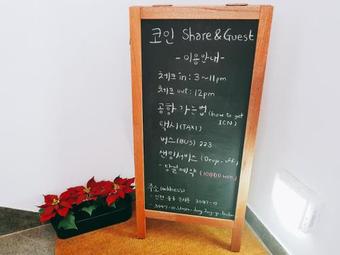 코인 Share & Guest
- 이용안내 -
체크 in : 3 ~ 11pm
체크 out : 12pm
공항 가는법 (how to get ICN)
택시 (TAXI)
버스 (BUS) 223
샌딩서비스 (Drop-off)
주소 (address)